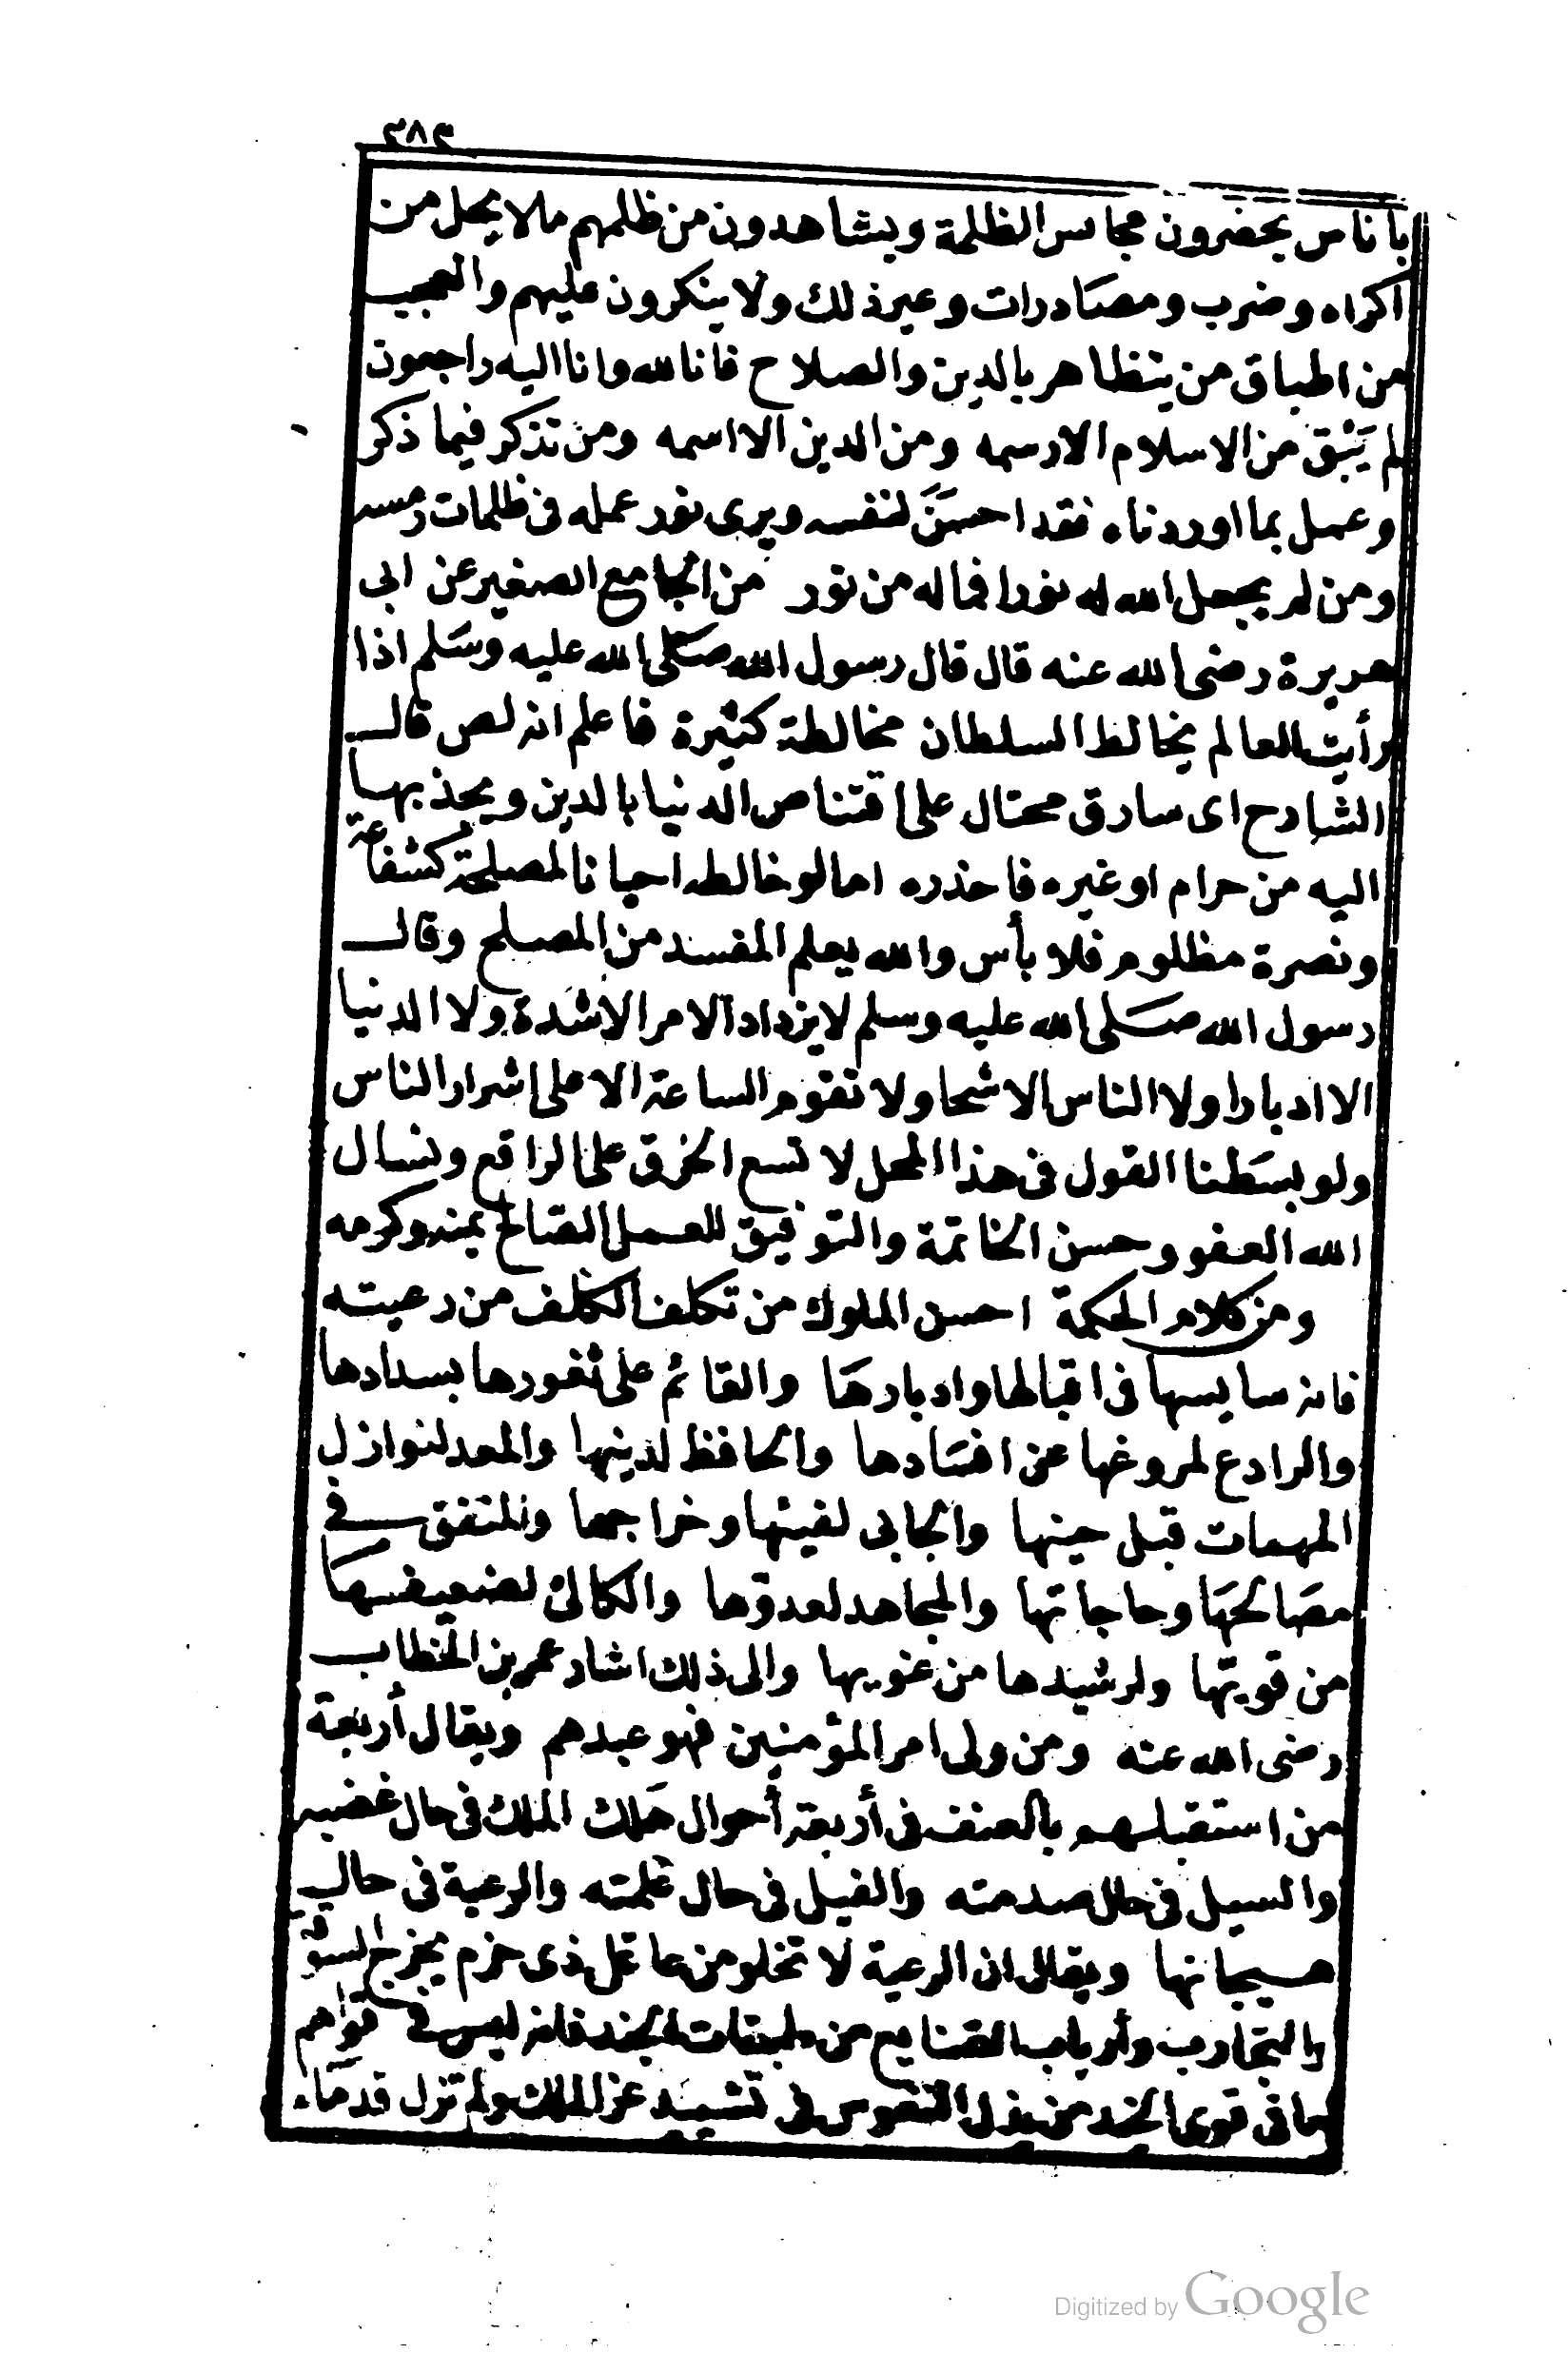 ٣٨٣
بأناس يحضرون مجالس الظلمة ويشاهدون من ظلمهم ما لا يحل من
اكراه وضرب ومصادرات وغير ذلك ولا ينكرون عليهم والعجب
من اطباق من يتظاهر بالدين والصلاح فانا لله وانا اليه راجعون
لم يَبْق من الاسلام الا رسمه ومن الدين الا اسمه ومن تذكر فيما ذكر
وعمل بما اوردناه فقد احسَنَ لنفسه ويرى نور عمله في ظلمات رمسه
ومن لم يجعل الله له نورا فماله من نور من الجامع الصغير عن ابى
هريرة رضى الله عنه قال قال رسول الله صَلى الله عليه وسَلم اذا
رأيت العالم يخالط السلطان مخالطة كثيرة فاعلم انه لص قال
الشارح اى سارق محتال على اقتناص الدنيا بالدين ويجذبها
اليه من حرام او غيره فاحذره اما لو خالطه احيانا لمصلحة كشفاعة
ونصرة مظلوم فلا بأس والله يعلم المفسد من المصلح وقال
رسول الله صَلى الله عليه وسلم لا يزداد الامر الا شدة ولا الدنيا
الا ادبارا ولا الناس الا شحا ولا تقوم الساعة الا على اشرار الناس
ولو بسَطنا القول في هذا المحل لا تسع الخرق على الراقع ونسال
الله العفو وحسن الخاتمة والتوفيق للعمل الصَالح بمنه وكرمه
ومن كلام الحكمة احسن الملوك من تكلف الكلف من رعيته
فانه سايسها فى اقبالها وادبارهَا والقائم على ثغورها بسدادها
والرادع لمروغها عن افسَادها والحافظ لدينها والمعد لنوازل
المهمات قبل حينها والجابى لفيئها وخراجها والمنفق في
مصَالحهَا وحاجاتها والمجاهد لعدوّها والكالئ لضعيفها
من قويتها ولرشيدها من غويها والى ذلك اشار عمر بن الخطاب
رضى الله عنه ومن ولى امر المؤمنين فهو عبدهم ويقال أربعة
من استقبلهم بالعنف فى أربعة أحوال هَلك الملك فى حال غضبه
والسيل فى حال صدمته والفيل فى حال غلمته والرعية فى حال
هيجانها ويقال ان الرعية لا تخلو من عاقل ذى حزم يخرج السوقة
والتجار وأرباب الصنايع من طبقات الجند فانه ليس في قواهم
ما فى قوى الجند من بذل النفوس فى تشييد عز الملك ولم تزل قدمَاء